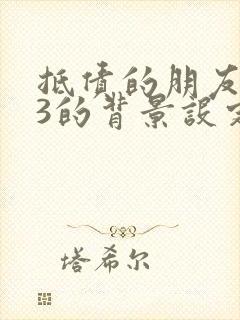 抵债的朋友
3的背景设定
塔希尔